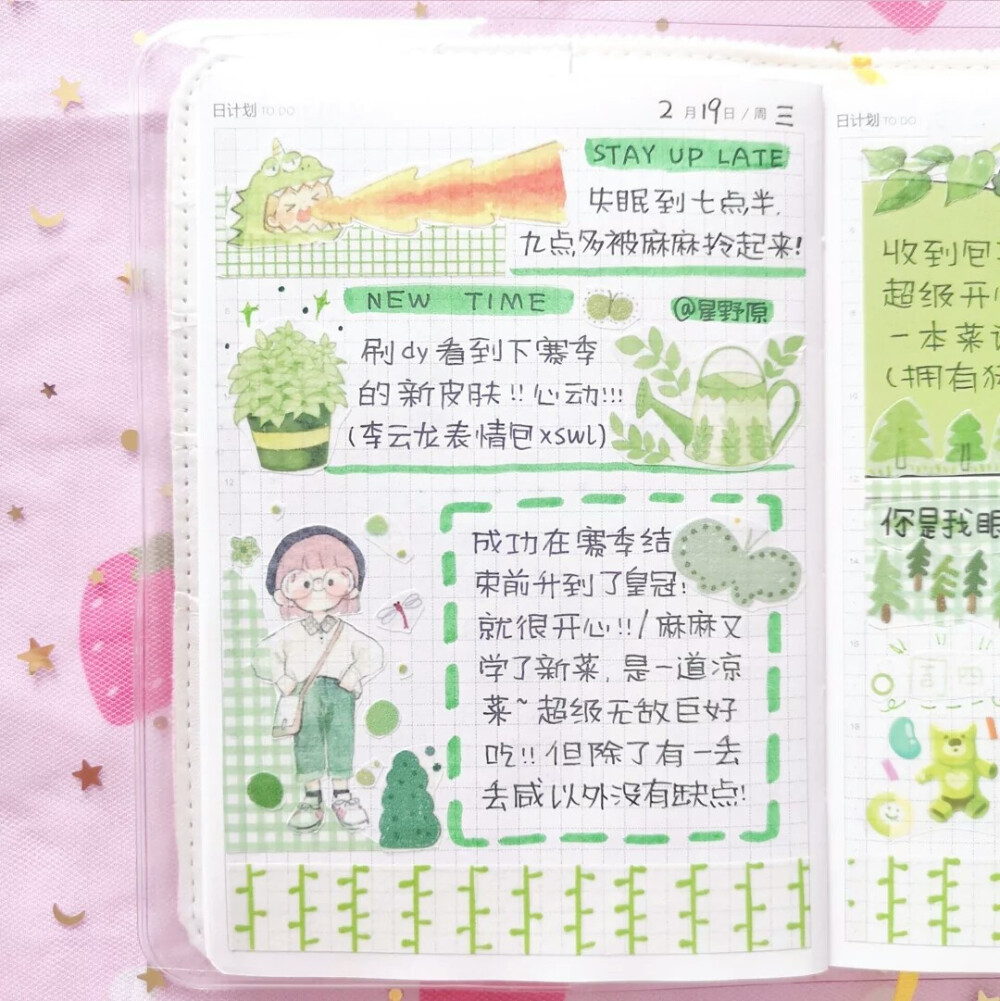 日计划 TO DO
2月19日/周三
STAY UP LATE
失眠到七点半.
九点多被麻麻拎起来!
NEW TIME
@星野原
刷dy看到下赛季
的新皮肤!!心动!!!
(李云龙表情包xswl)
12
成功在赛季结
束前升到了皇冠!
就很开心!!/麻麻又
学了新菜,是一道凉
菜~超级无敌巨好
吃!!但除了有一丢
丢咸以外没有缺点!
日计划 TO DO
收到包
超级开心
一本菜
(拥有
你是我眼
周四